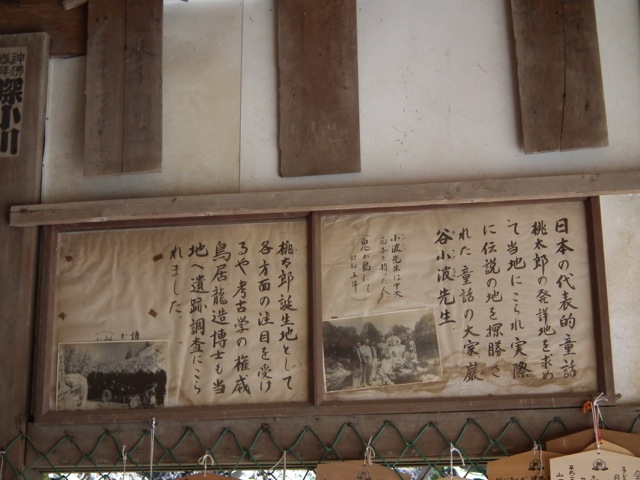 日本の代表的童話
桃太郎の発祥地を求め
て当地にこられ実際
に伝説の地を探勝さ
れた童話の大家巌
谷小波先生
小波先生は中央
扇子を持った人
(鬼が島にて
昭和五年)
桃太郎誕生地として
各方面の注目を受け
るや考古学の権威
鳥居龍造博士も当
地へ遺跡調査にこら
れました。
深小川